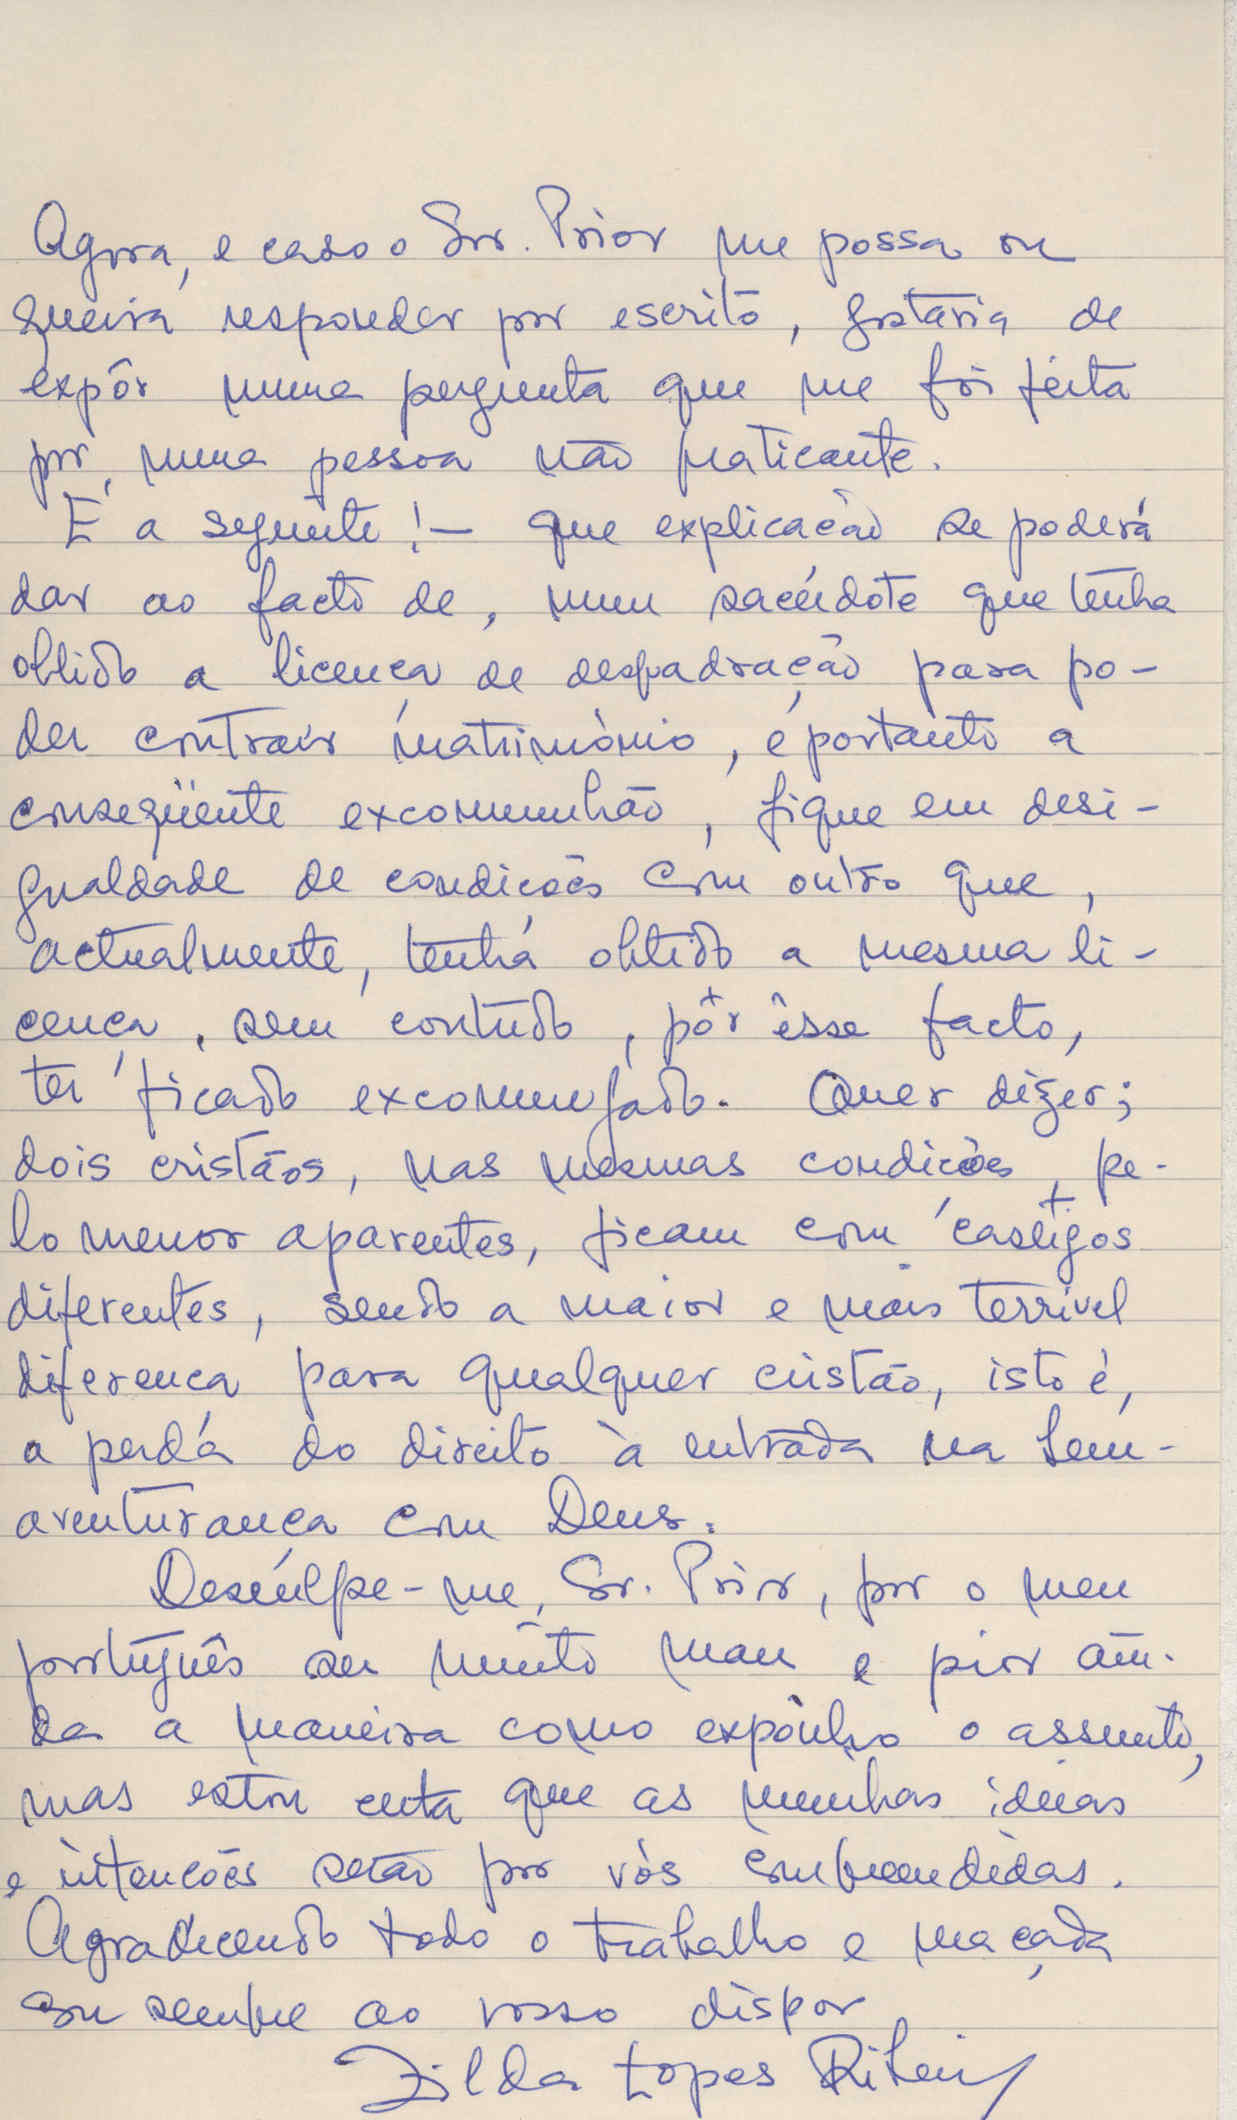 Agora, e caso o Snr. Prior me possa ou
queira responder por escrito, gostaria de
expôr uma pergunta que me foi feita
por uma pessoa não praticante.
É a seguinte! — que explicação se poderá
dar ao facto de, um sacerdote que tenha
obtido a licença de despadração para po-
der contrair matrimónio, e portanto a
conseqüente excomunhão, fique em desi-
gualdade de condições com outro que,
actualmente, tenha obtido a mesma li-
cença, sem contudo, pôr êsse facto,
ter ficado excomungado. Quer dizer;
dois cristãos, nas mesmas condições, pe-
lo menor aparentes, ficam com castigos
diferentes, sendo a maior e mais terrivel
diferença para qualquer cristão, isto é,
a perda do direito à entrada na bem-
aventurança com Deus.
Desculpe-me, Sr. Prior, por o meu
português ser muito mau e pior ain-
da a maneira como exponho o assunto,
mas estou certa que as minhas ideias
e intenções serão por vós compreendidas.
Agradecendo todo o trabalho e maçada
sou sempre ao vosso dispor
Zilda Lopes Ribeiro